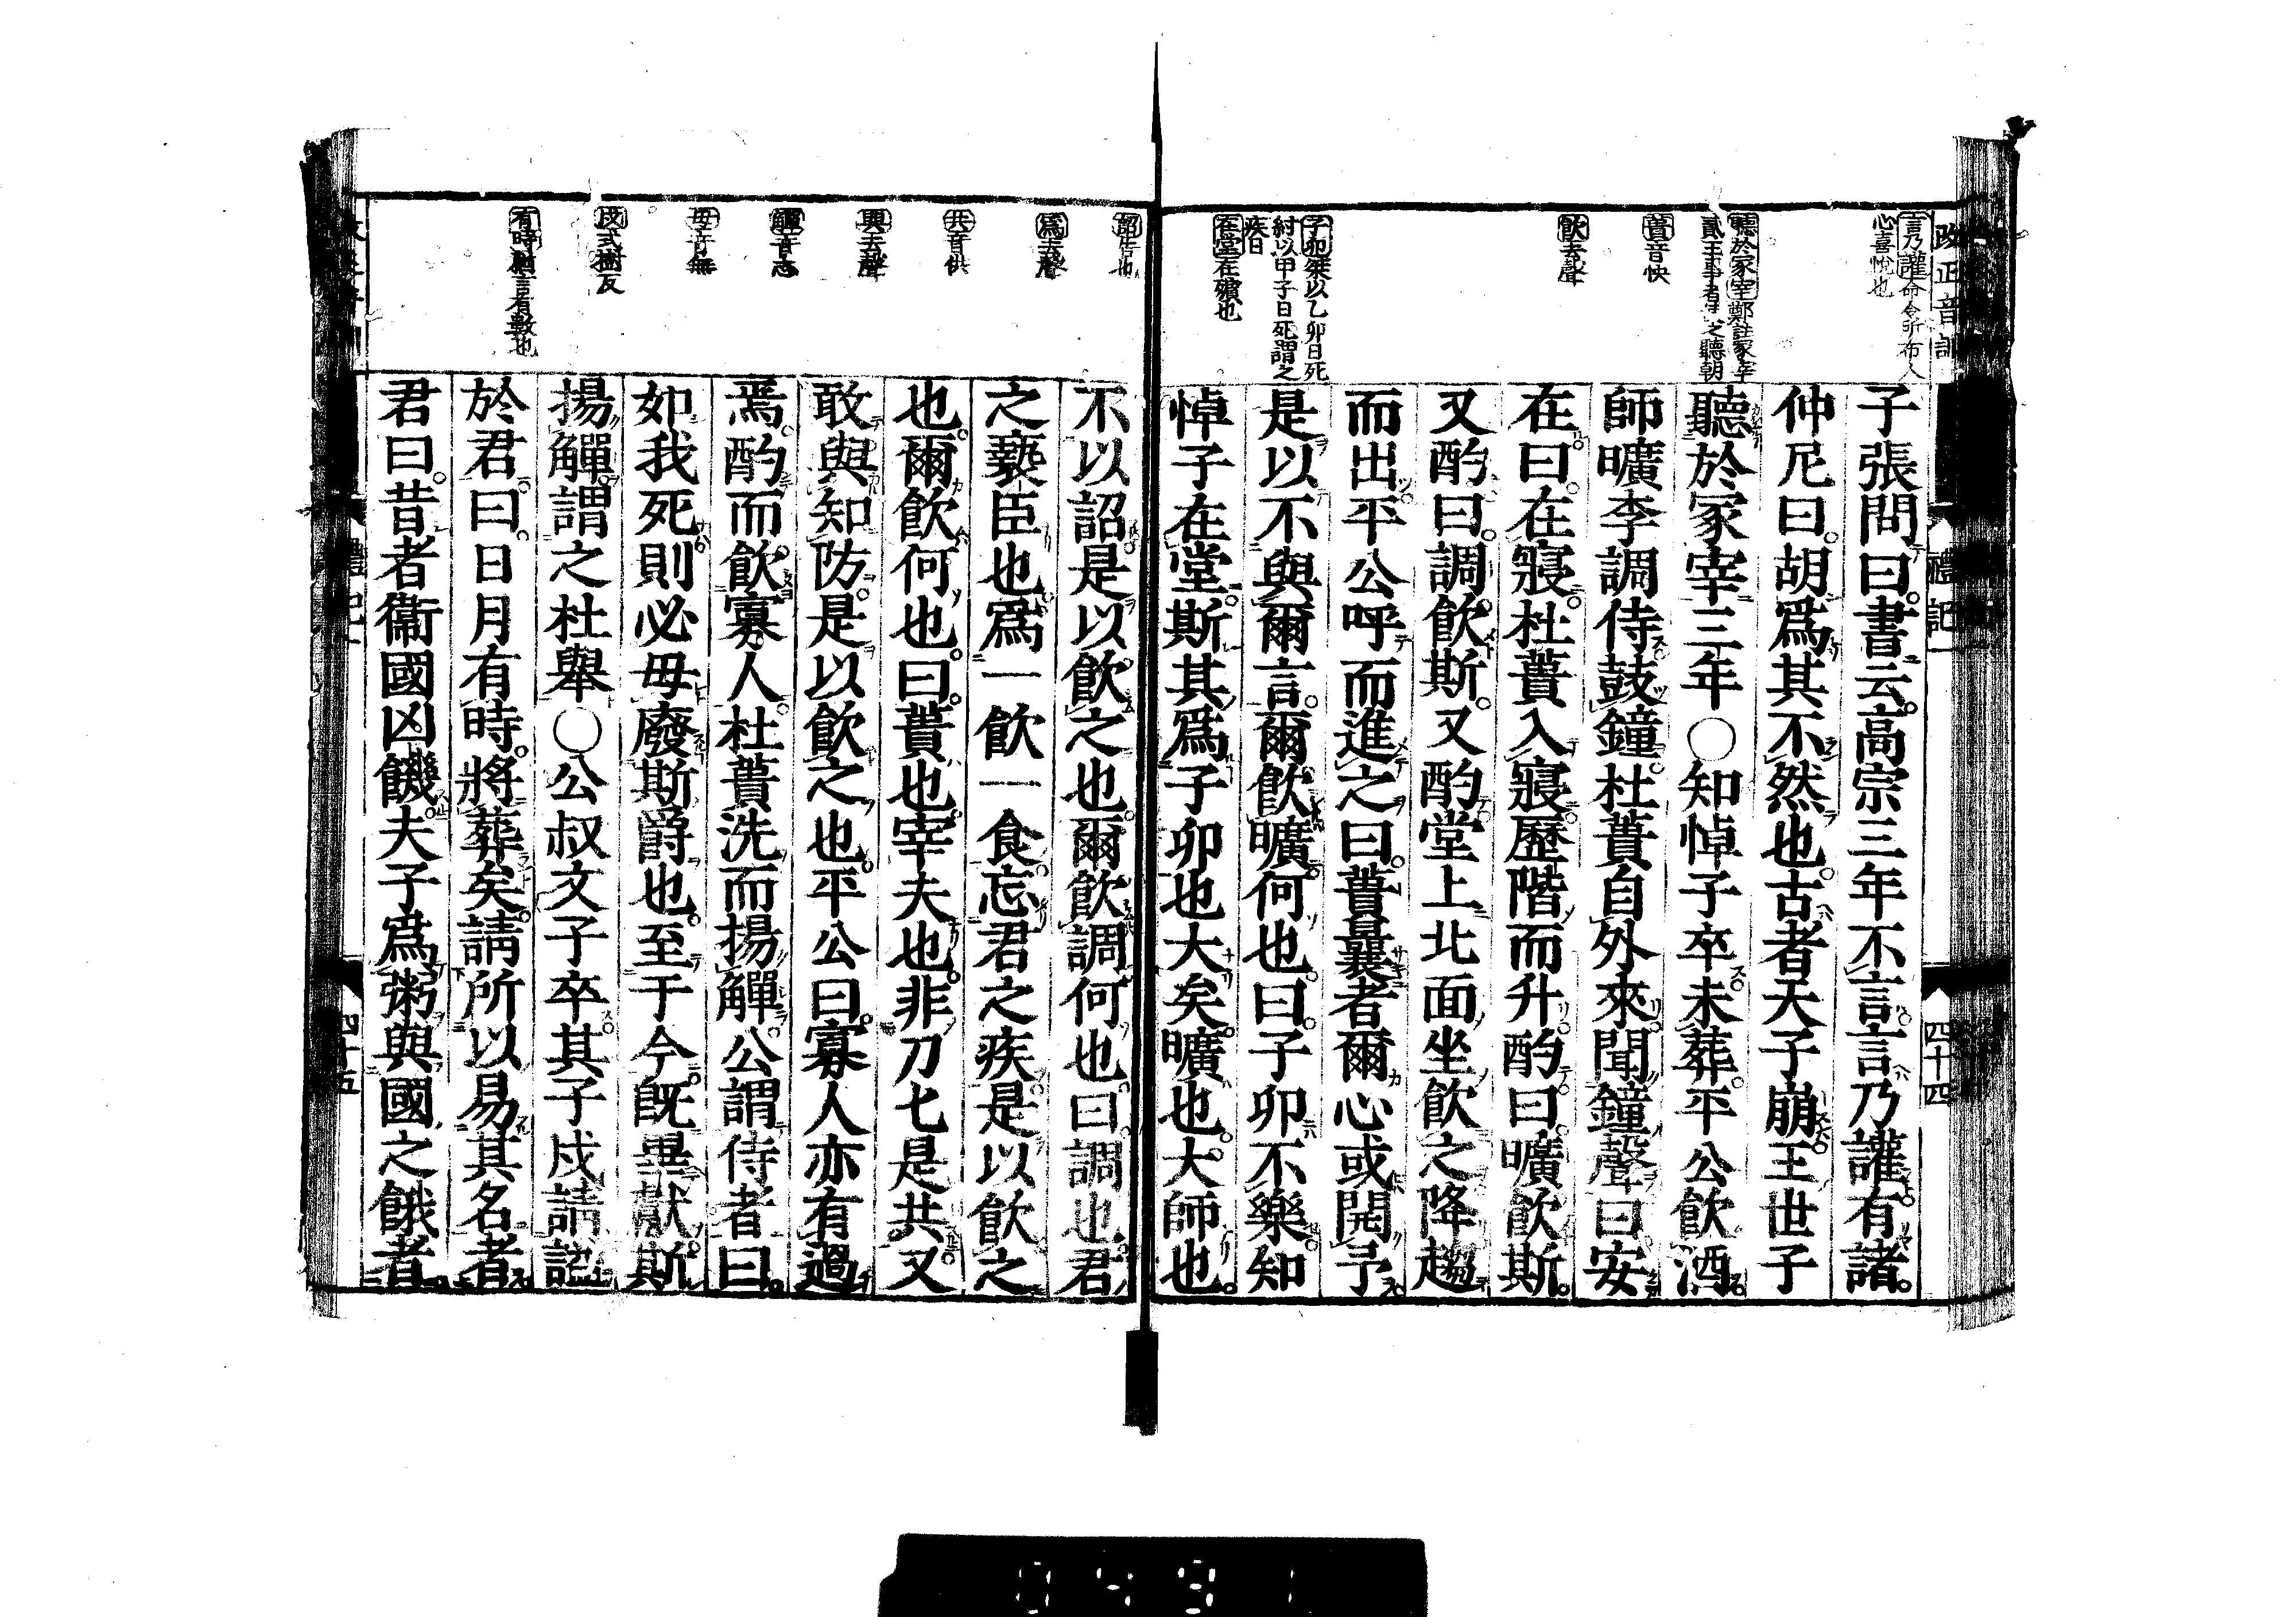 改正音訓
禮記一
四十四
言乃讙命令所布人
心喜悅也
聽於冢宰鄭註冢宰
貳王事者之聽朝
蕢音快
飲去聲
子卯桀以乙卯日死
紂以甲子日死謂之
疾日
在堂在殯也
子張問曰書云高宗三年不言言乃讙有諸
仲尼曰胡爲其不然也古者天子崩王世子
聽於冢宰三年〇知悼子卒未葬平公飲酒
師曠李調侍鼓鐘杜蕢自外來聞鐘聲曰安
在曰在寢杜蕢入寢歷階而升酌曰曠飲斯
又酌曰調飲斯又酌堂上北面坐飲之降趨
而出平公呼而進之曰蕢曩者爾心或開予
是以不與爾言爾飲曠何也曰子卯不樂知
悼子在堂斯其爲子卯也大矣曠也大師也
詔告也
爲去聲
共音供
與去聲
觶音志
毋音無
戍式樹反
有時猶言有數也
不以詔是以飲之也爾飲調何也曰調也君
之褻臣也爲一飲一食忘君之疾是以飲之
也爾飲何也曰蕢也宰夫也非刀匕是共又
敢與知防是以飲之也平公曰寡人亦有過
焉酌而飲寡人杜蕢洗而揚觶公謂侍者曰
如我死則必毋廢斯爵也至于今既畢獻斯
揚觶謂之杜舉〇公叔文子卒其子戍請諡
於君曰日月有時將葬矣請所以易其名者
君曰昔者衞國凶饑夫子爲粥與國之餓者
四十五